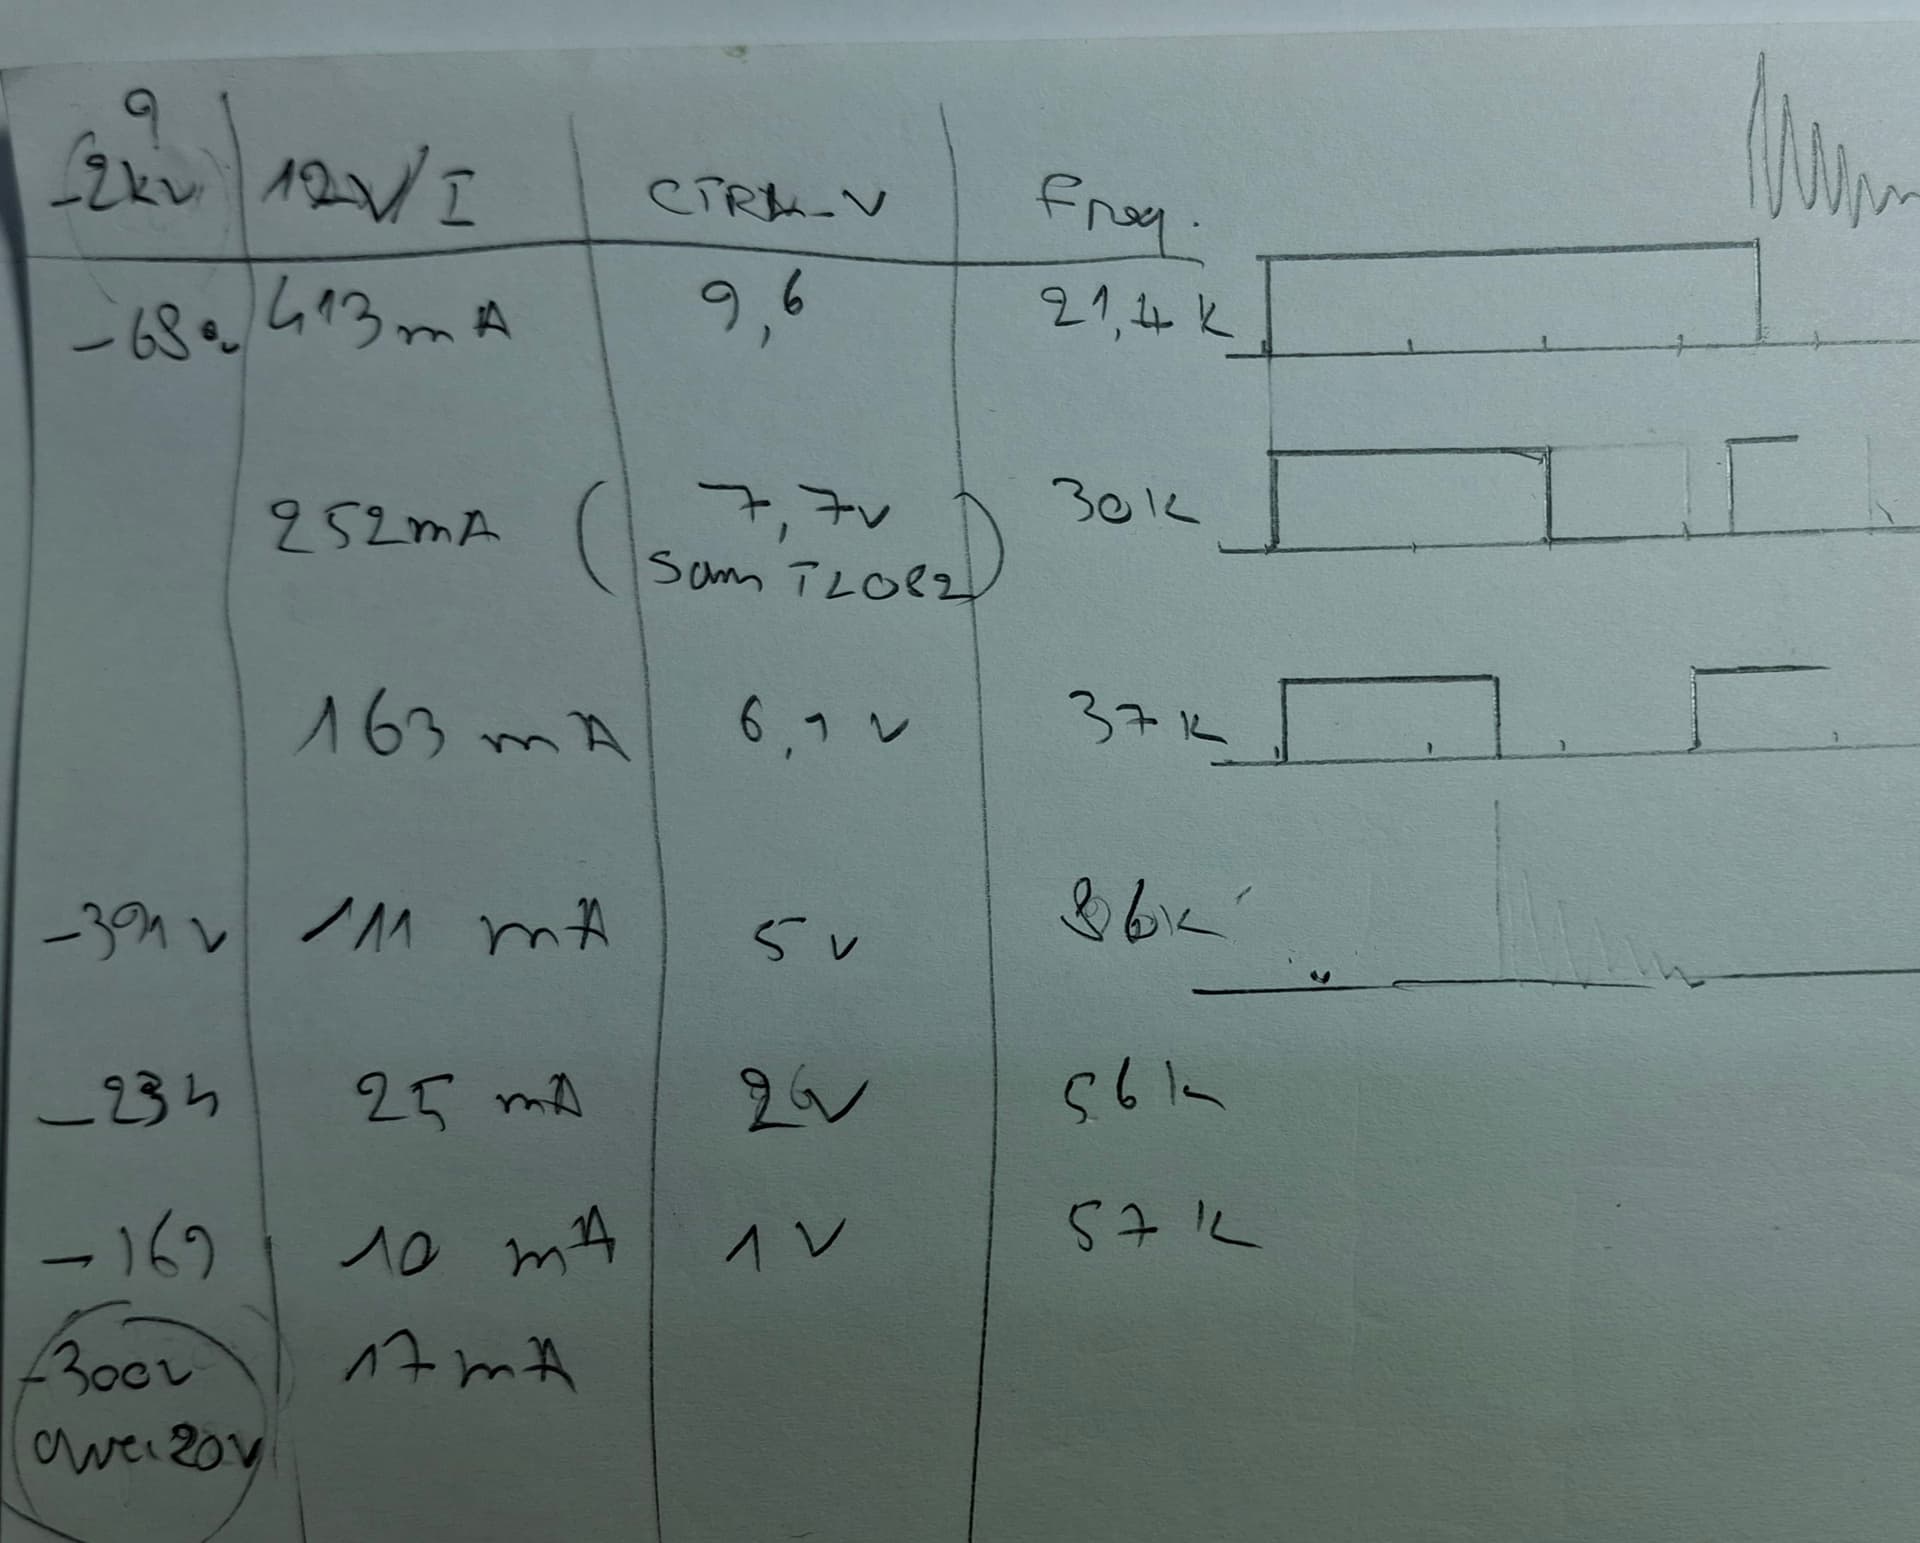 9
-2kv 12V/I CTRL_V Freq.
-680v 413mA 9,6 21,4k
252mA (7,7v 30k
sans TL082)
163mA 6,1v 37k
-391v 111mA 5v 36k
-234 25mA 2v 56k
-169 10mA 1V 57k
-300v 17mA
avec 20v